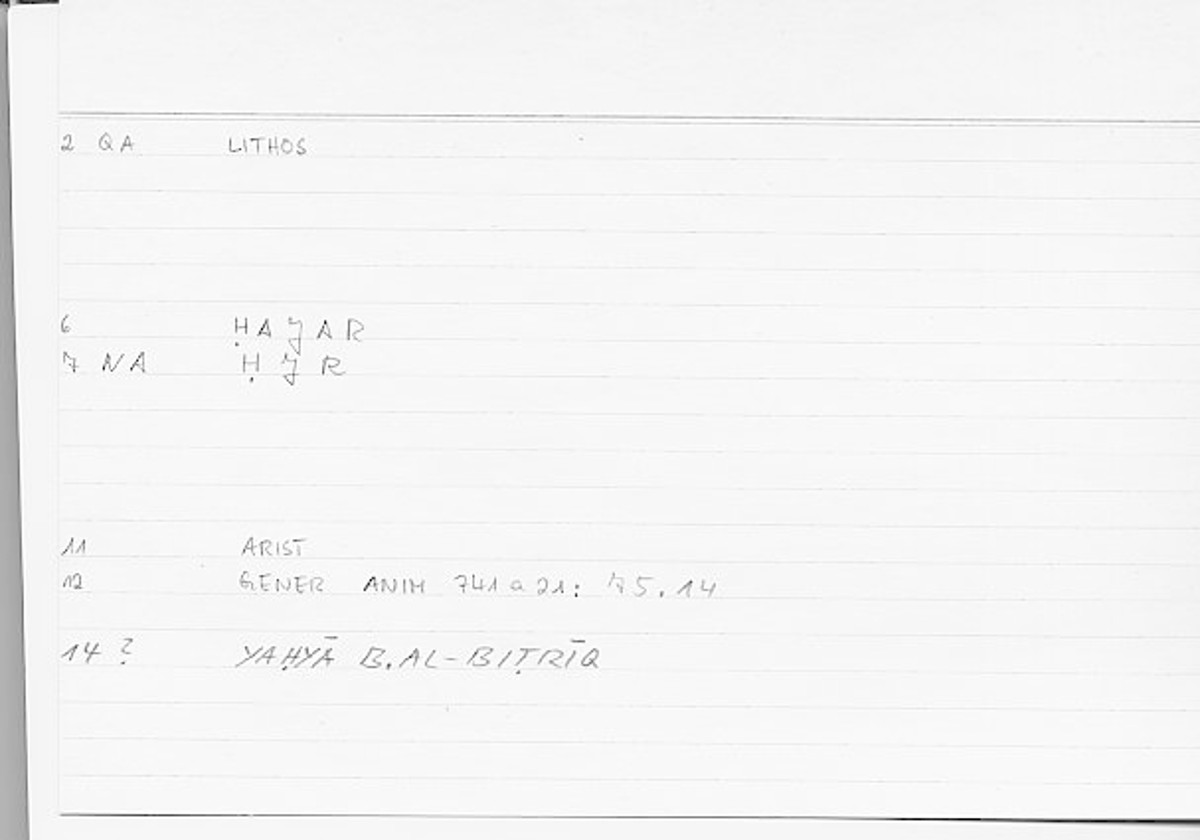 2 QA LITHOS
6 ḤAJAR
7 NA ḤJR
11 ARIST
12 GENER ANIM 741a21: 75.14
14 ? YAḤYĀ B.AL-BIṬRĪQ